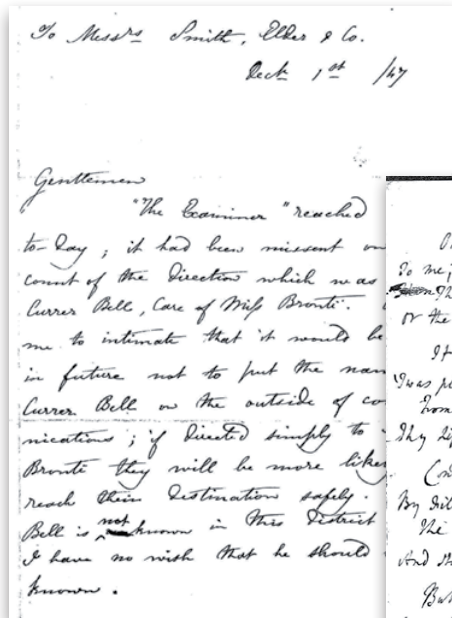 To Messrs Smith, Elder & Co.
Decbr 1st /47
Gentlemen
"The Examiner" reached
to-day; it had been missent on
count of the direction which was
Currer Bell, Care of Miss Brontë.
me to intimate that it would be
in future not to put the nam
Currer Bell on the outside of co
nications; if directed simply to
Brontë they will be more likel
reach their destination safely.
Bell is not known in this district
I have no wish that he should
known.
To me
or the
If
'Twas
From
Thy
Con
By
The
And
But